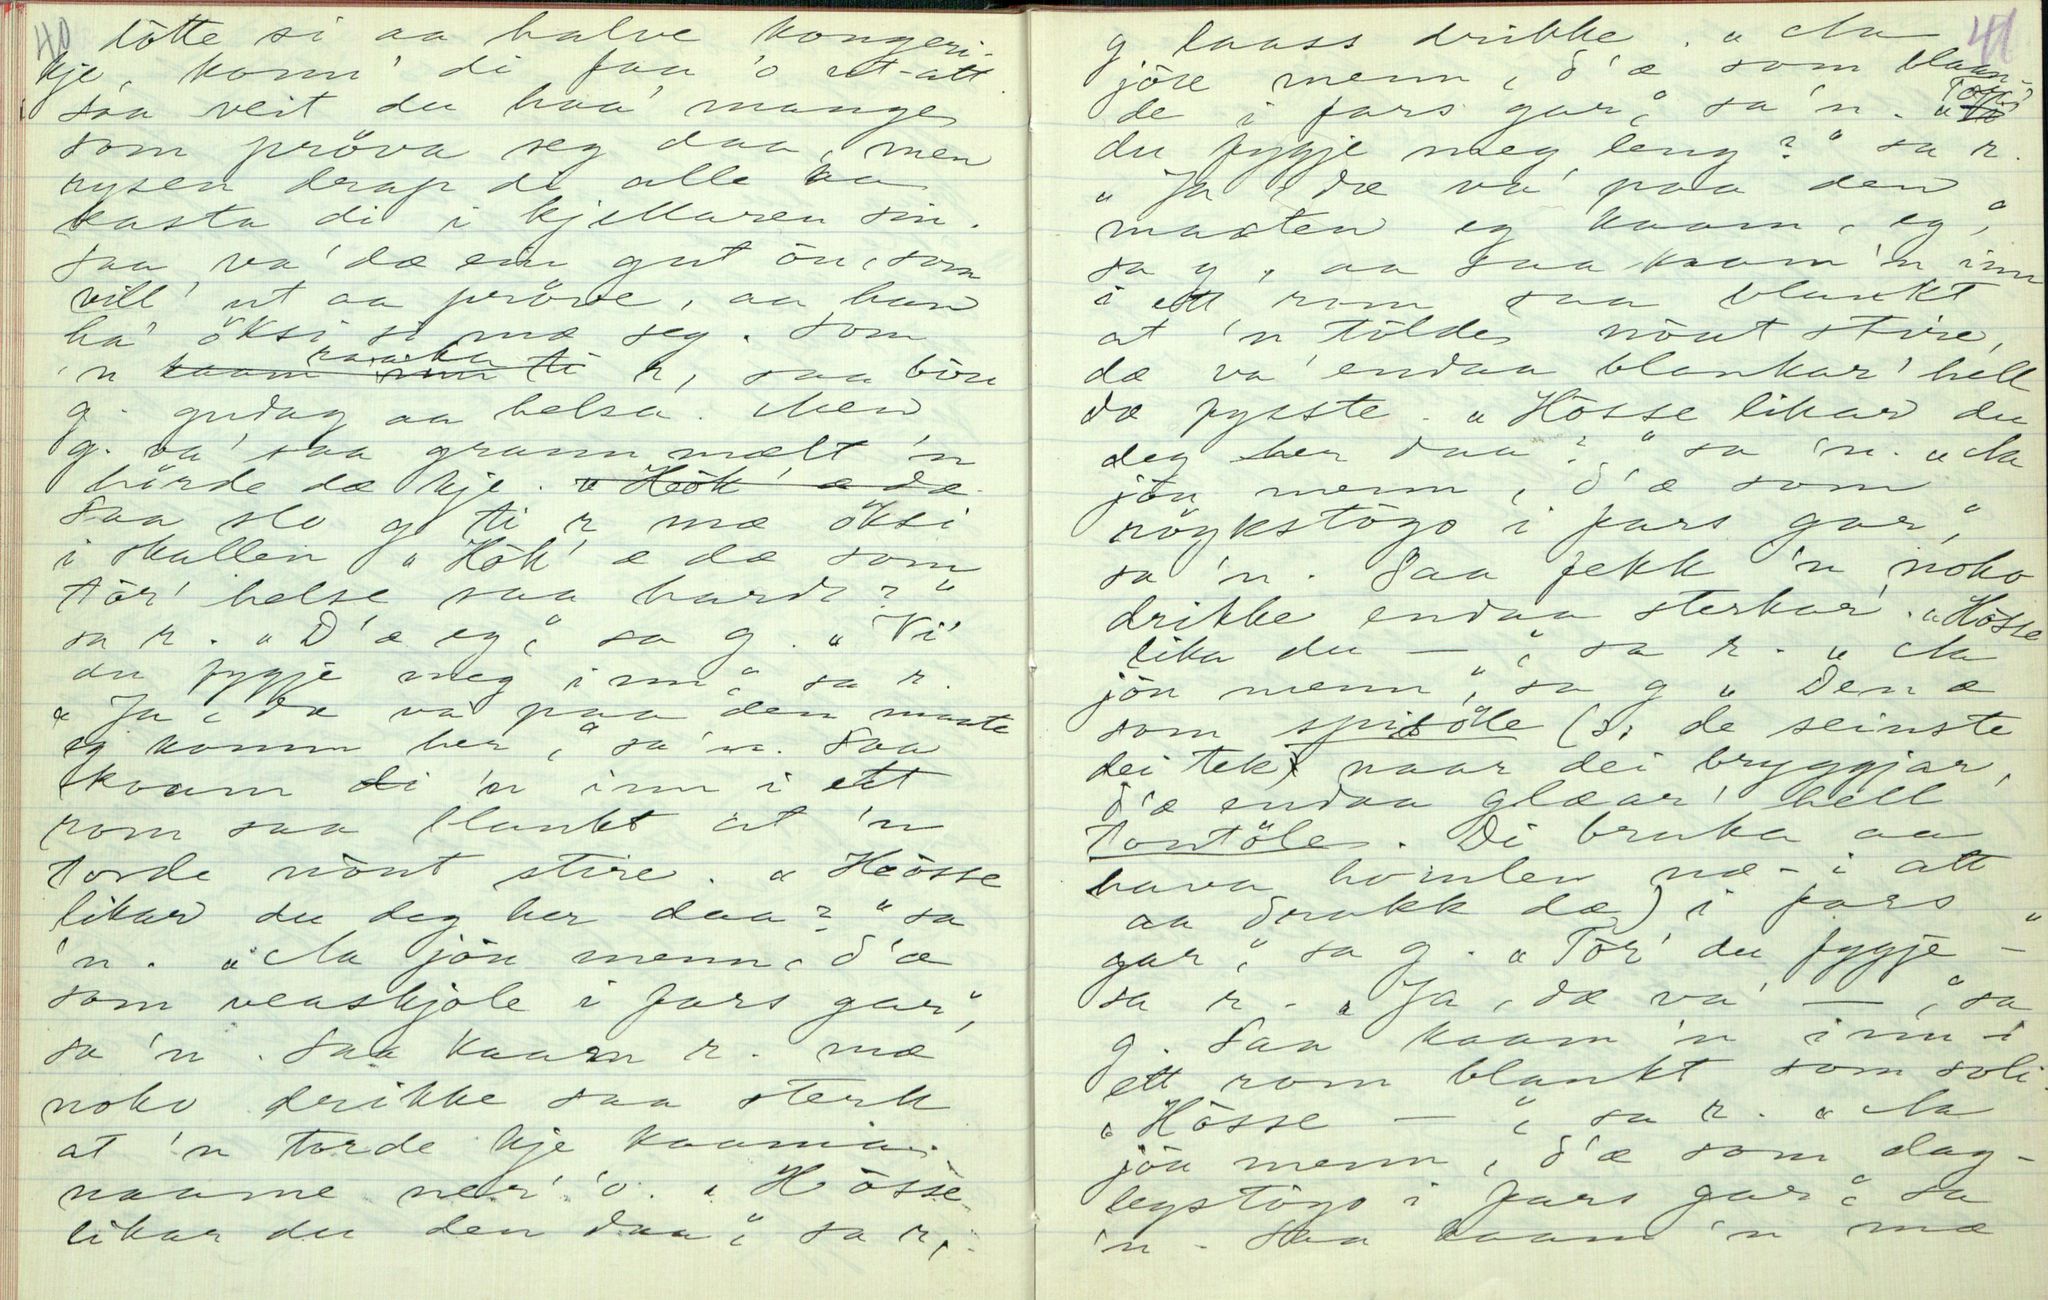 40
tötte si aa halve kongeri-
kje, konn' di faa 'o ut-att
saa veit du haa' mange
som pröva seg daa, men
rysen drap di alle aa
kasta di i kjellaren sin.
Saa va' dæ ein gut ön, som
vill' ut aa pröve, aa han
ha' öksi si mæ seg. Som
'n raaka r, saa bön
g. gudag aa helsa. Men
g. va' saa grannmælt 'n
hörde dæ kje. „Hök' æ dæ
Saa slo g ti r mæ öksi
i skallen „Hök' æ dæ som
tör' helse saa hardt?"
sa r. „D'æ eg," sa g. „Vi'
du fygje meg inn," sa r.
„Ja, dæ va' paa den maate
eg komm her," sa 'n. Saa
kvam di 'n inn i ett
rom saa blankt at 'n
torde nönt stire. „Hösse
likar du deg her daa?" sa
'n. „Aa jön menn, d'æ
som veaskjole i fars gar",
sa 'n. Saa kaam r. mæ
noko drikke saa sterk
at 'n torde kje kaama
naame ner' 'o. „Hösse
likar du den daa", sa r,
41
g laass drikke. „Aa
jöse menn, d'æ som blaan-
de i fars gar," sa 'n. „Torjis
du fygje meg leng?" sa r.
„Ja, dæ va' paa den
maaten eg kaam, eg",
sa g, aa saa kaam 'n inn
i ett rom saa blankt
at 'n töldes nönt stire,
dæ va' endaa blankar' hell
dæ fysste. „Hösse likar du
deg her daa?" sa 'n. „Aa
jön menn, d'æ som
röykstögo i fars gar",
sa 'n. Saa fekk 'n noko
drikke endaa sterkar'. „Hösse
lika du —", sa r. „Aa
jön menn", sa g „Den æ
som spisölle (ɔ: de seinste
dei tek naar dei bryggjar,
d'æ endaa glæar' hell
tontöle. Di bruka aa
hava homlen næ-i att
aa drakk dæ) i fars
gar", sa g. „Tör' du fygje —"
sa r. „Ja, dæ va' —", sa
g. Saa kaam 'n inn i
ett rom blankt som soli.
„Hösse —", sa r. „Aa
jön menn, d'æ som dag-
legstögo i fars gar", sa
'n. Saa kaam 'n mæ